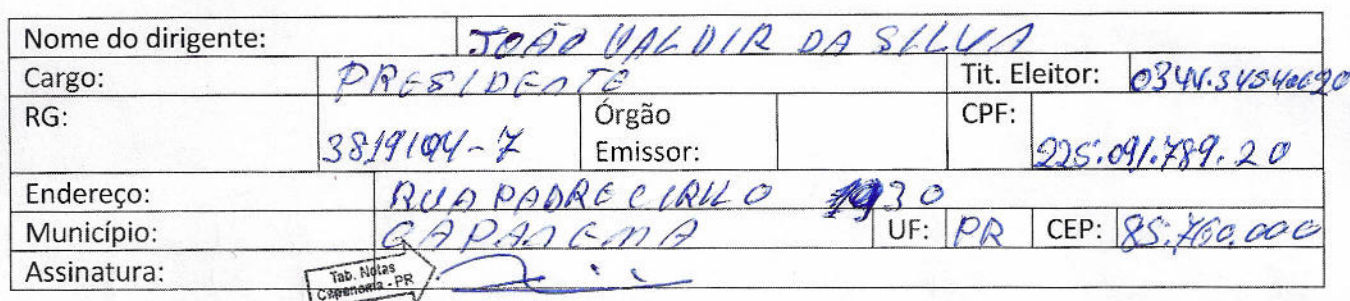 Nome do dirigente: JOÃO VALDIR DA SILVA
Cargo: PRESIDENTE Tit. Eleitor:
RG: 3819104-7 Órgão Emissor: CPF: 225.091.789.20
Endereço: RUA PADRE CIRILO 1930
Município: CAPANEMA UF: PR CEP: 85.760.000
Assinatura:
Tab. Notas
Capanema - PR